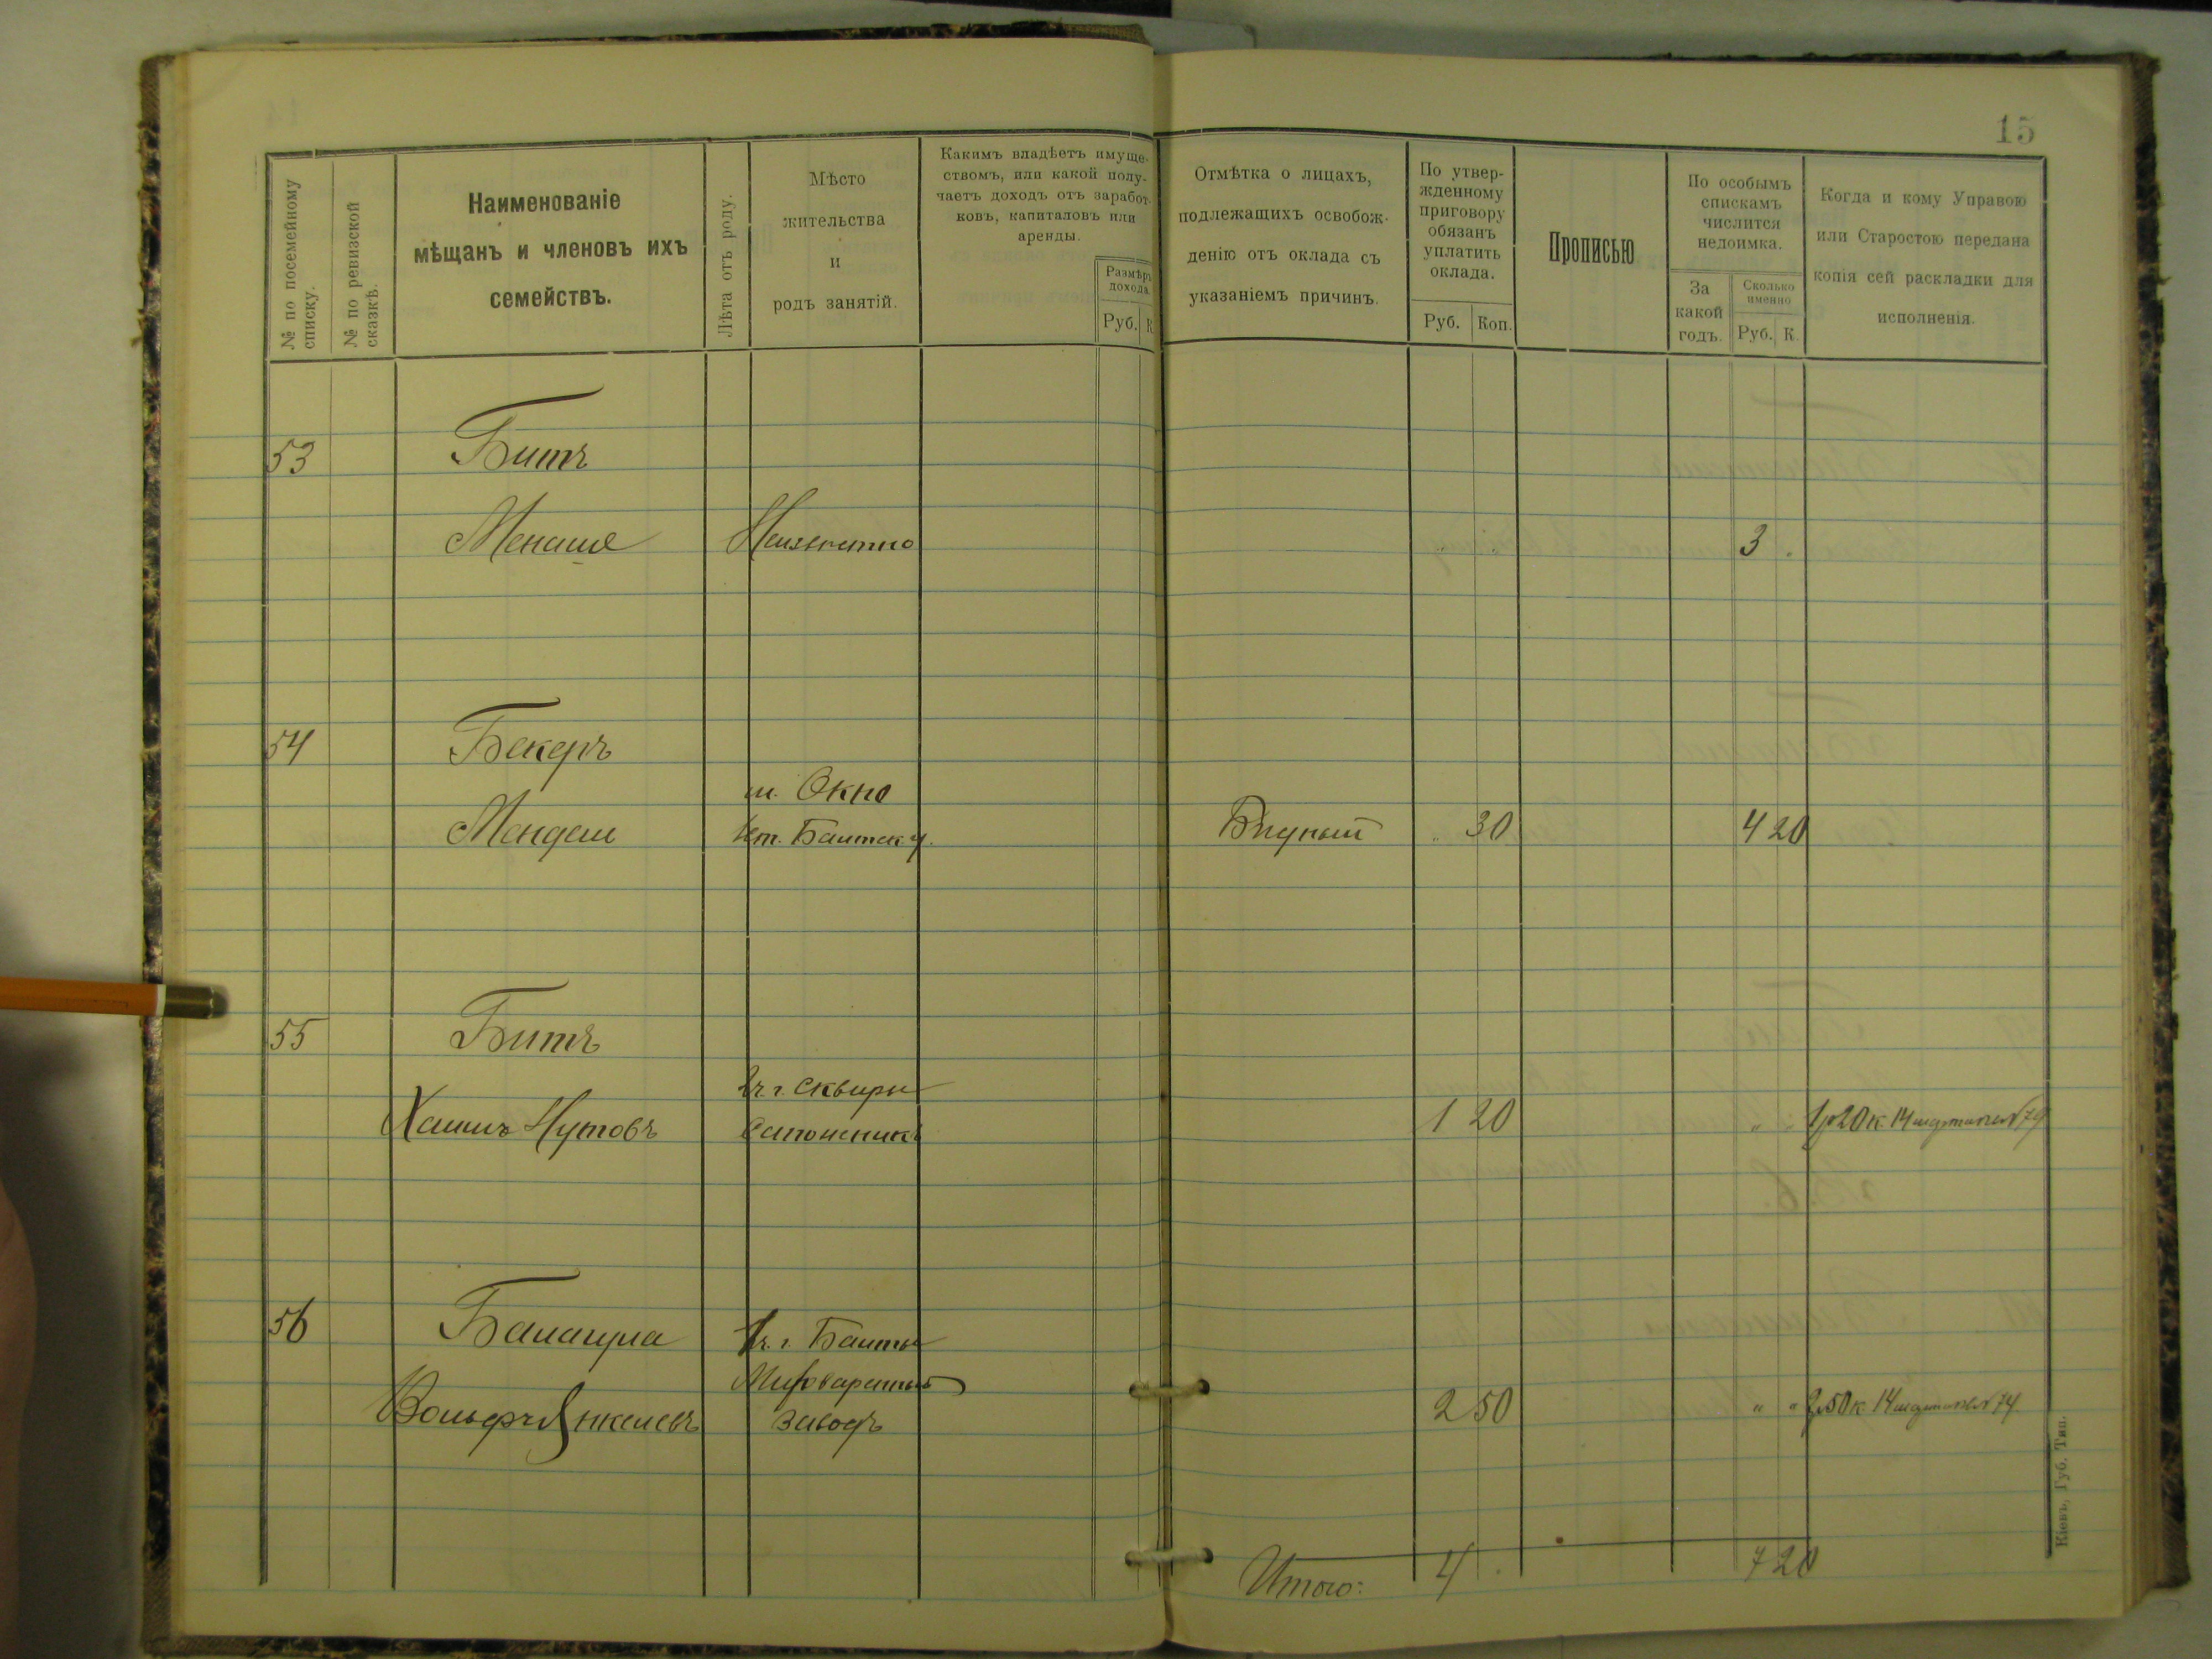 15
№ по посемейному
списку.
№ по ревизской
сказкѣ.
Наименованіе
мѣщанъ и членовъ ихъ
семействъ.
Лѣта отъ роду.
Мѣсто
жительства
и
родъ занятій.
Какимъ владѣетъ имуще-
ствомъ, или какой полу-
чаетъ доходъ отъ заработ-
ковъ, капиталовъ или
аренды.
Размѣръ
дохода.
Руб. К.
Отмѣтка о лицахъ,
подлежащихъ освобож-
денію отъ оклада съ
указаніемъ причинъ.
По утвер-
жденному
приговору
обязанъ
уплатить
оклада.
Руб. Коп.
Прописью
По особымъ
спискамъ
числится
недоимка.
За
какой
годъ.
Сколько
именно
Руб. К.
Когда и кому Управою
или Старостою передана
копія сей раскладки для
исполненія.
53 Битъ
Менаше Неизвѣстно " " 3 .
54 Бекеръ
м. Окно
Мендель Балтск. у. Бѣдный " 30 4 20
55 Битъ
г. Сквиры
Хаимъ Нутовъ Сапожникъ 1 20 " " 1р 20к. 14
56 Балацула г. Балты
Вольфъ Янкелевъ заводъ 2 50 " " 2р 50к. 14
Итого: 4 . 7 20
Кіевъ, Губ. Тип.